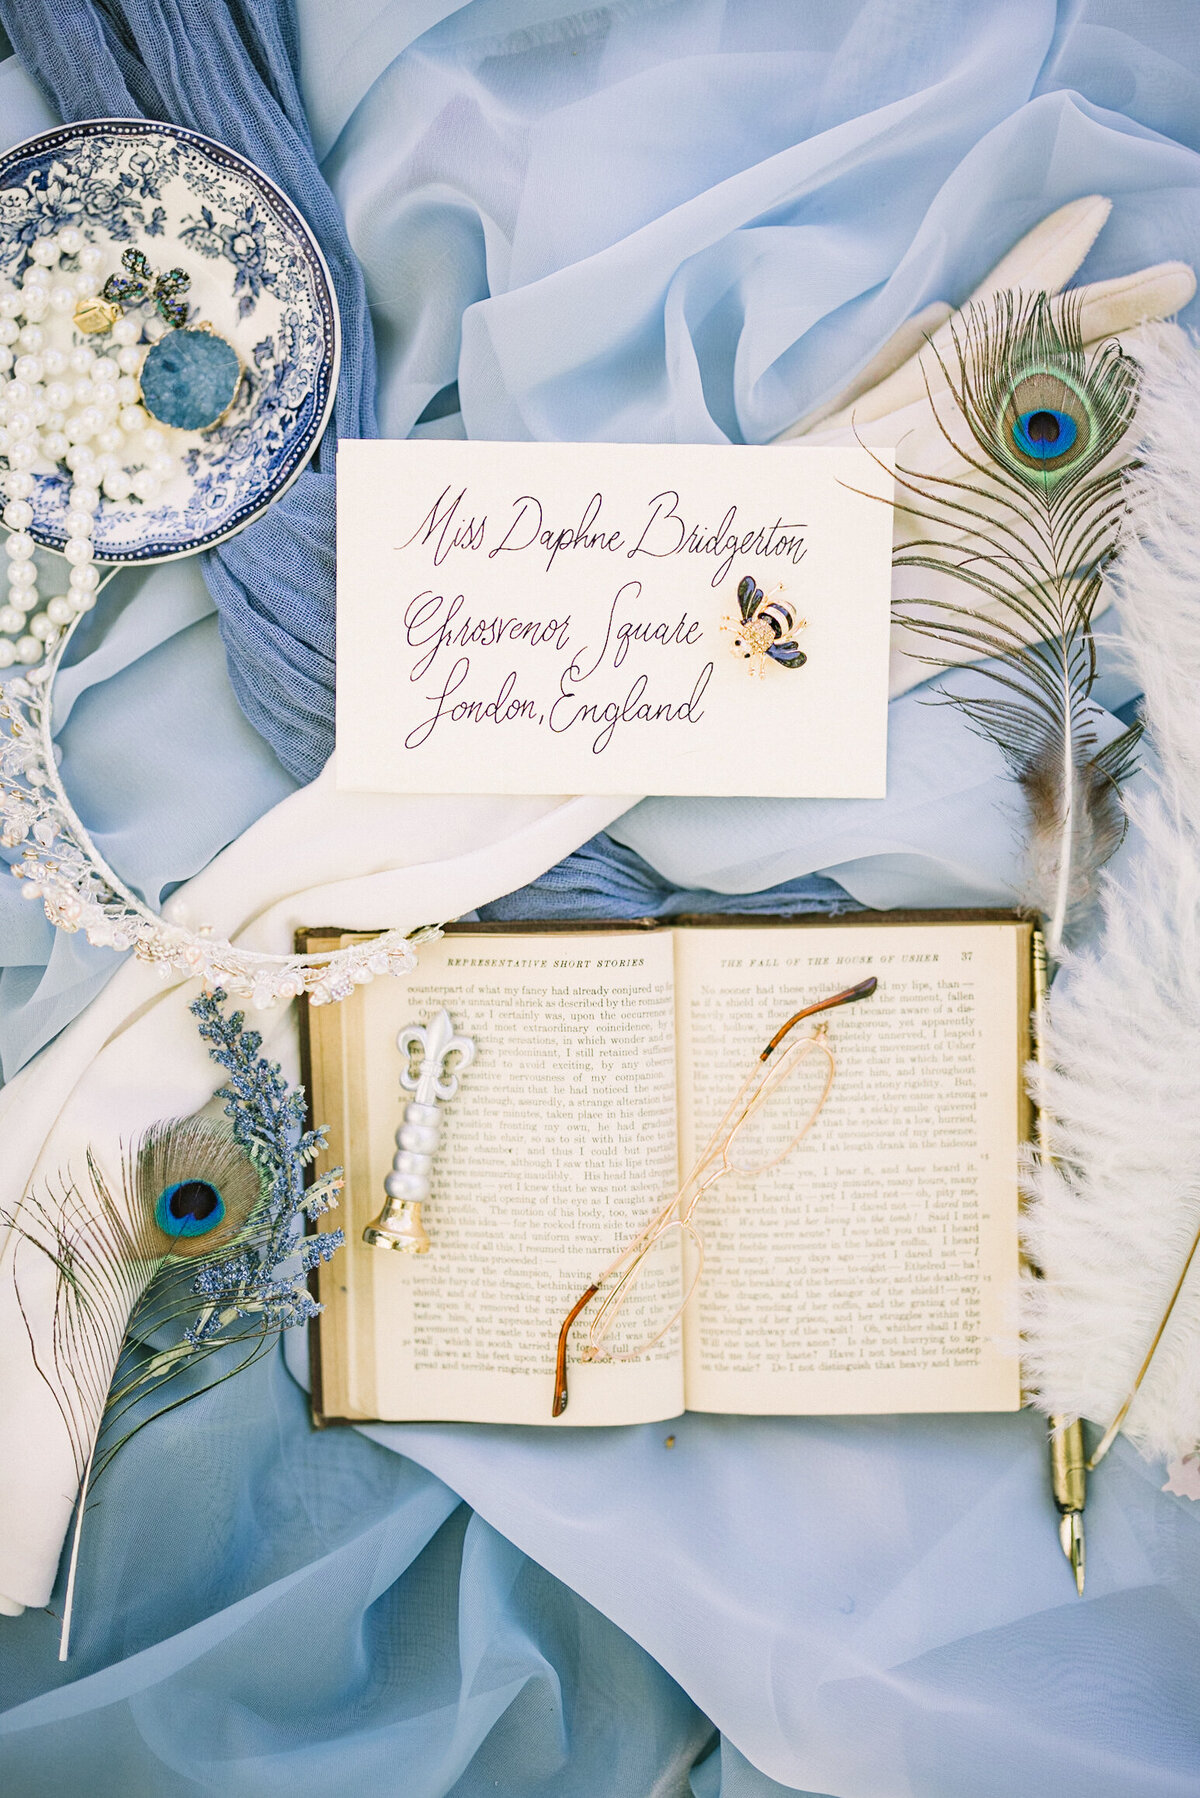 Miss Daphne Bridgerton
Grosvenor Square
London, England
REPRESENTATIVE SHORT STORIES
counterpart of what my fancy had already conjured up for
the dragon's unnatural shriek as described by the romancer.
as I certainly was, upon the occurrence of
and most extraordinary coincidence, by a
sensations, in which wonder and
were predominant, I still retained sufficient
mind to avoid exciting, by any
sensitive nervousness of my companion.
means certain that he had noticed the
although, assuredly, a strange alteration had
the last few minutes, taken place in his
position fronting my own, he had
round his chair, so as to sit with his face to
the chamber; and thus I could but
his features, although I saw that his lips
were murmuring inaudibly. His head had
his breast — yet I knew that he was not asleep, from
wide and rigid opening of the eye as I caught a
it in profile. The motion of his body, too, was at
with this idea — for he rocked from side to
yet constant and uniform sway.
notice of all this, I resumed the narrative of
which thus proceeded: —
"And now the champion, having from the
terrible fury of the dragon, bethinking of the
shield, and of the breaking up of the enchantment which
was upon it, removed the out of the
before him, and approached over the
pavement of the castle to where the shield was
wall; which in sooth tarried for full
fell down at his feet upon the with a mighty
great and terrible ringing sound."
THE FALL OF THE HOUSE OF USHER 37
No sooner had these syllables my lips, than —
as if a shield of brass had at the moment, fallen
heavily upon a floor — I became aware of a
hollow, clangorous, yet apparently
muffled reverberation. unnerved, I leaped
to my feet; but rocking movement of Usher
was undisturbed. I rushed to the chair in which he sat.
His eyes were fixedly before him, and throughout
his whole countenance there reigned a stony rigidity. But,
as I placed my hand upon his shoulder, there came a strong
his whole person; a sickly smile quivered
that he spoke in a low, hurried,
as if unconscious of my presence.
closely over him, I at length drank in the hideous
— yes, I hear it, and have heard it.
— long — many minutes, many hours, many
days, have I heard it — yet I dared not — oh, pity me,
miserable wretch that I am! — I dared not — I dared not
speak! We have put her living in the tomb! Said I not
that my senses were acute? I now tell you that I heard
her first feeble movements in the hollow coffin. I heard
them — many, many days ago — yet I dared not — I
dared not speak! And now — to-night — Ethelred — ha!
ha! — the breaking of the hermit's door, and the death-cry
of the dragon, and the clangor of the shield! — say,
rather, the rending of her coffin, and the grating of the
iron hinges of her prison, and her struggles within the
coppered archway of the vault! Oh, whither shall I fly?
Will she not be here anon? Is she not hurrying to up-
braid me for my haste? Have I not heard her footstep
on the stair? Do I not distinguish that heavy and horri-